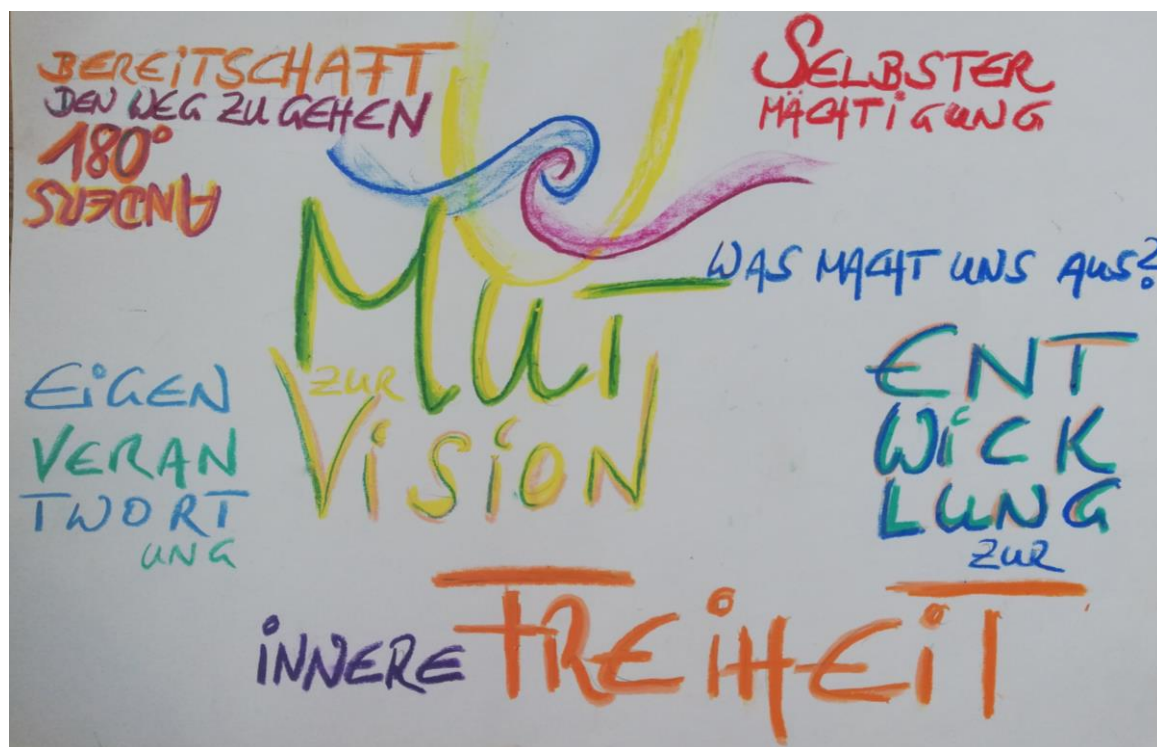 BEREITSCHAFT
DEN WEG ZU GEHEN
180°
ANDERS
SELBSTER
MÄCHTIGUNG
MUT
ZUR
VISION
WAS MACHT UNS AUS?
EIGEN
VERAN
TWORT
UNG
ENT
WICK
LUNG
ZUR
INNERE FREIHEIT